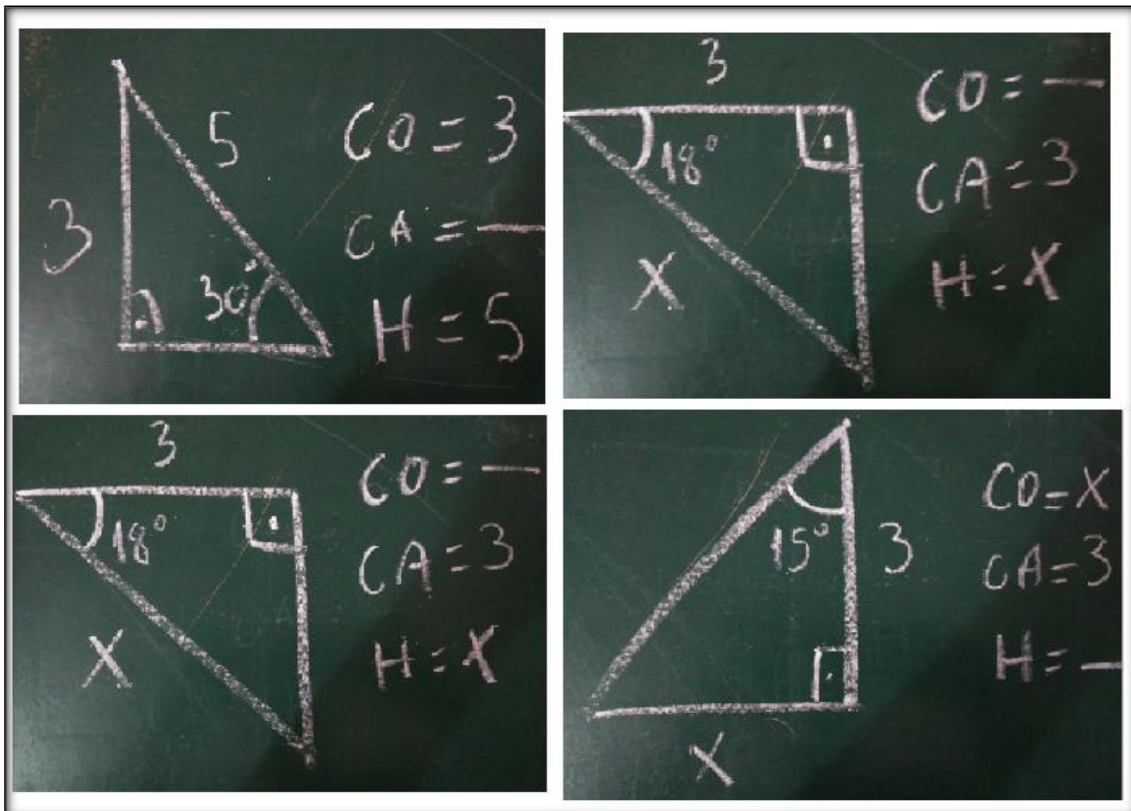 3
5
30°
CO = 3
CA = —
H = 5
3
18°
X
CO = —
CA = 3
H = X
3
18°
X
CO = —
CA = 3
H = X
15°
3
X
CO = X
CA = 3
H = —